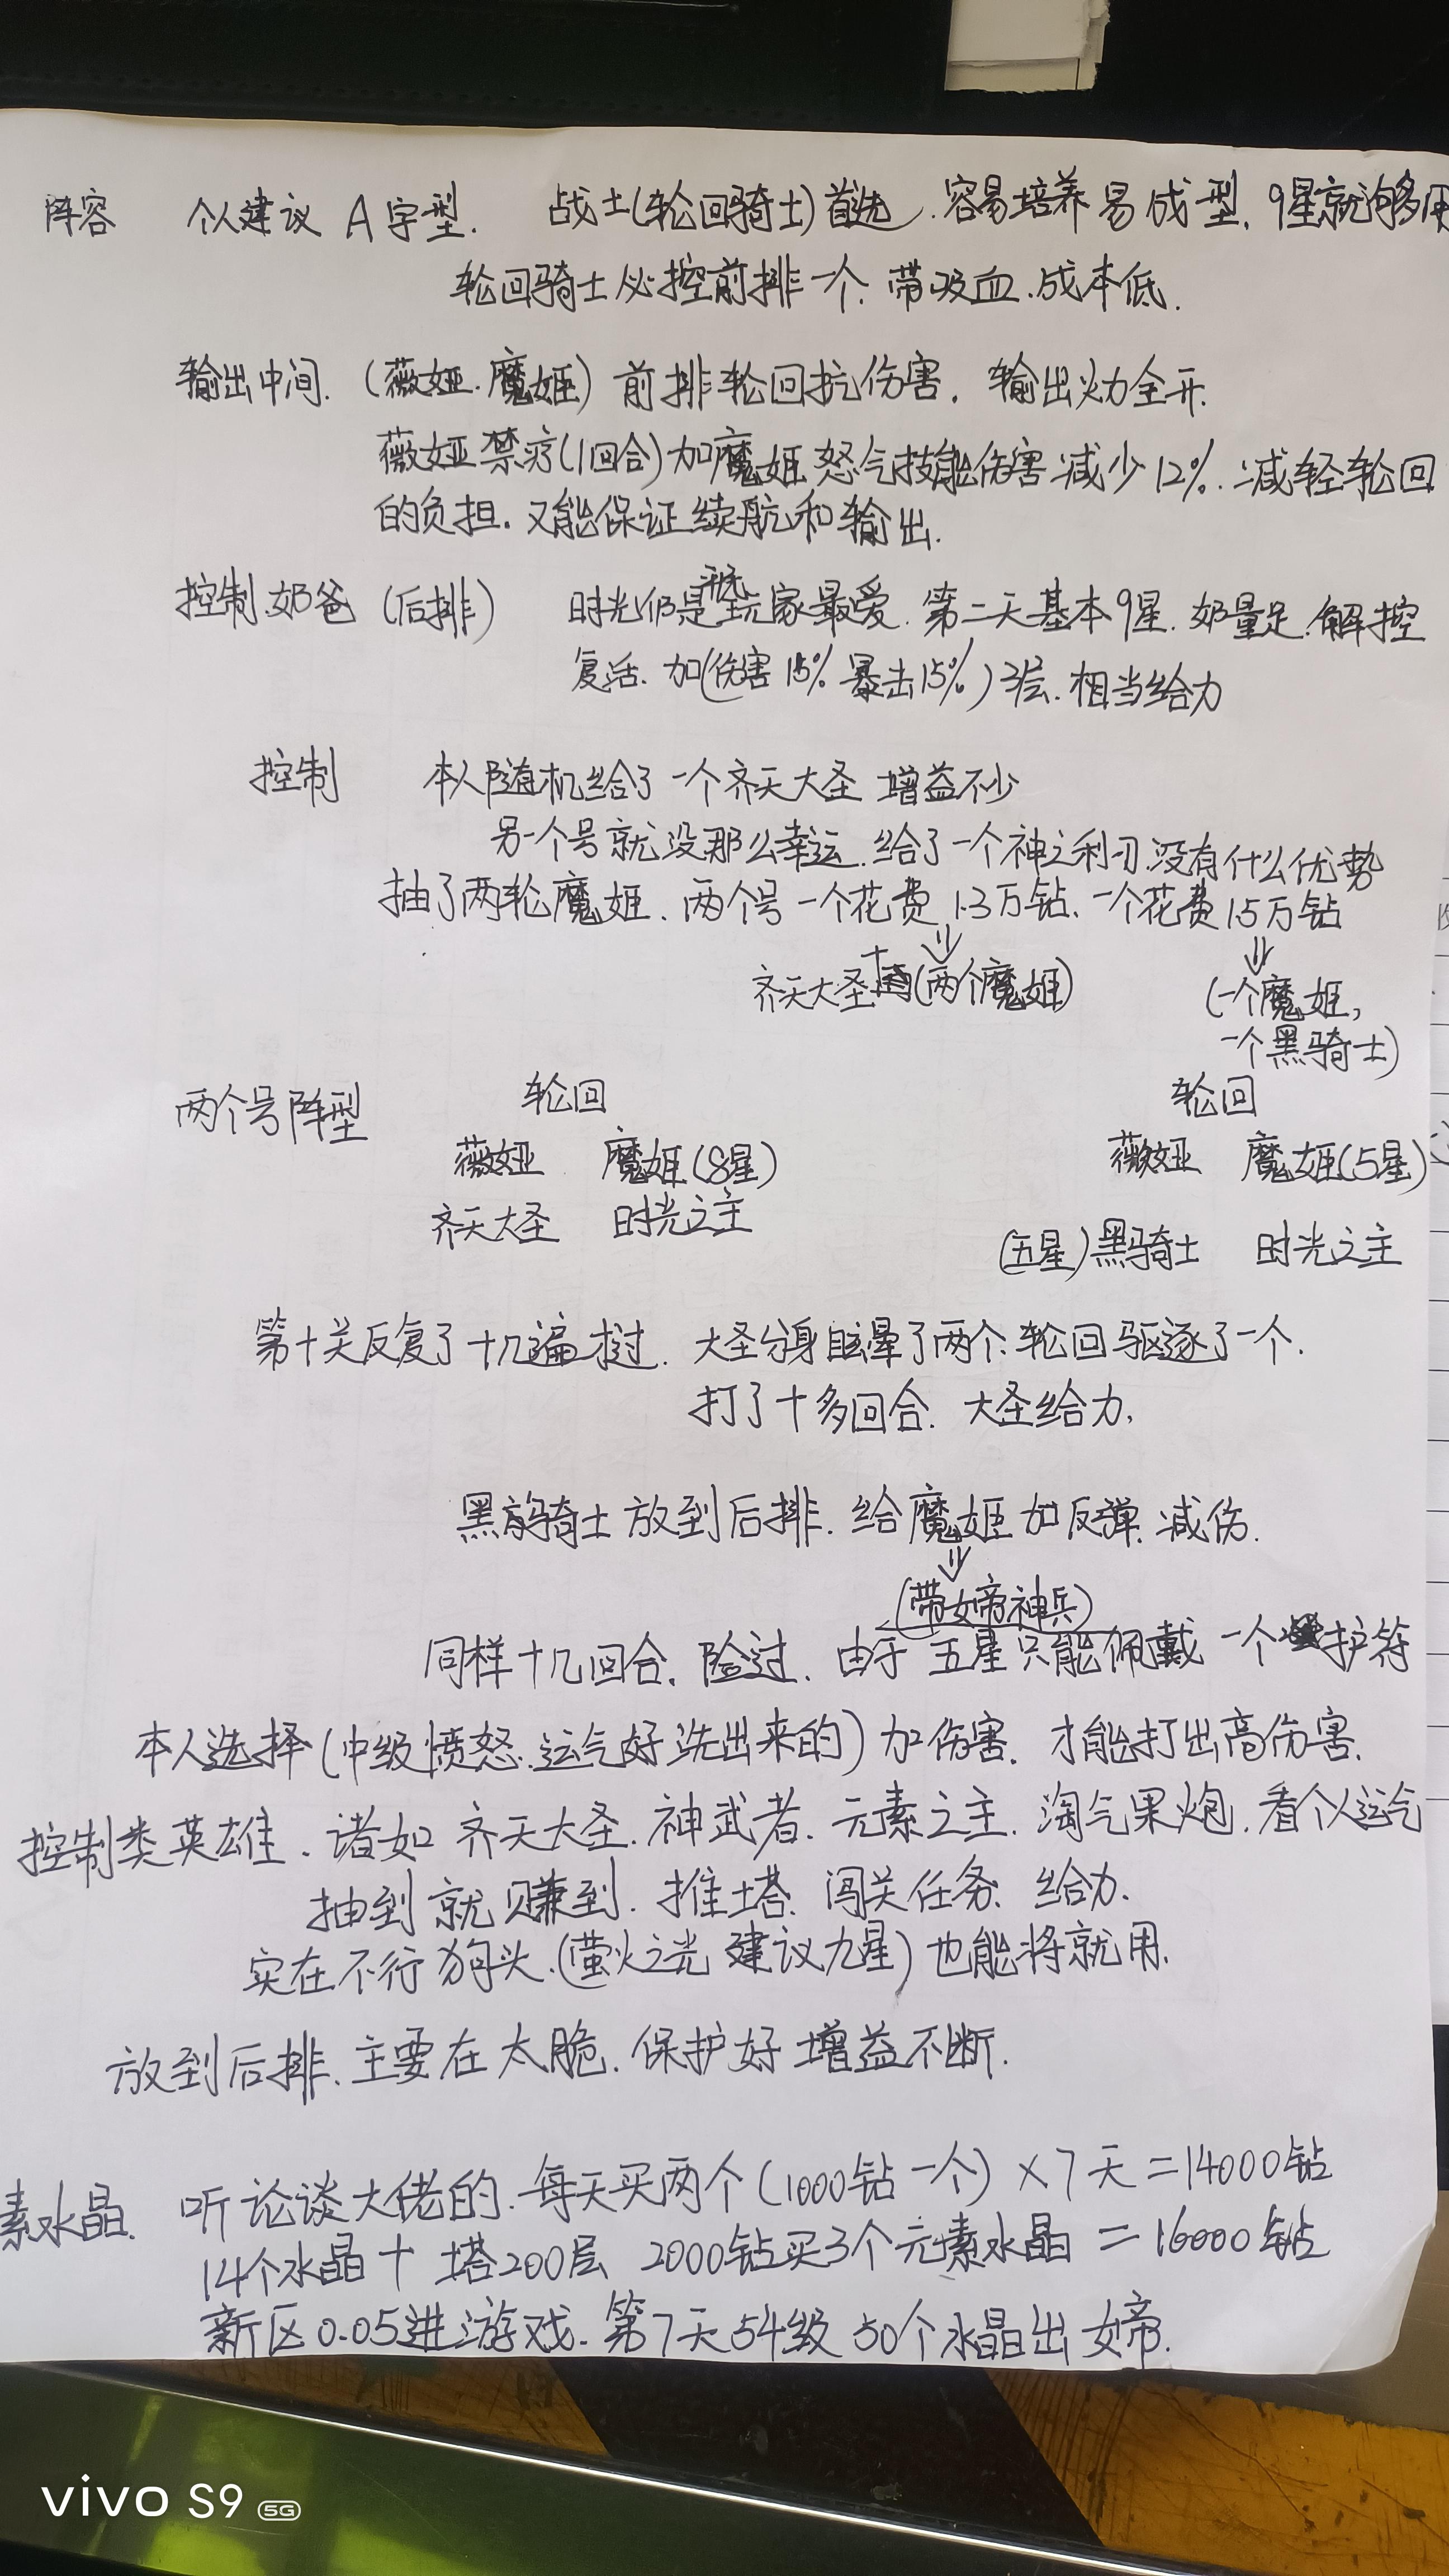 阵容 个人建议 A字型. 战士(轮回骑士)首选.容易培养易成型.9星就够用
轮回骑士必控前排一个.带吸血.成本低.
输出中间.(薇娅.魔姬)前排轮回抗伤害.输出火力全开.
薇娅禁疗(1回合)加魔姬怒气技能伤害减少12%.减轻轮回
的负担.又能保证续航和输出.
控制.奶爸(后排) 时光仍是玩家最爱.第二天基本9星.奶量足.解控
复活.加(伤害15%暴击15%)3层.相当给力
控制 本人随机给了一个齐天大圣 增益不少
另一个号就没那么幸运.给了一个神之利刃.没有什么优势
抽了两轮魔姬.两个号一个花费1.3万钻.一个花费1.5万钻
⇓ ⇓
齐天大圣+(两个魔姬) (一个魔姬,
一个黑骑士)
两个号阵型 轮回 轮回
薇娅 魔姬(8星) 薇娅 魔姬(5星)
齐天大圣 时光之主 (五星)黑骑士 时光之主
第十关反复了十几遍.大圣分身眩晕了两个.轮回驱逐了一个.
打了十多回合.大圣给力.
黑骑士放到后排.给魔姬加反弹.减伤.
⇓
(带女帝神兵)
同样十几回合.险过.由于五星只能佩戴一个护符
本人选择(中级愤怒.运气好洗出来的)加伤害.才能打出高伤害.
控制类英雄.诸如齐天大圣.神武者.元素之主.淘气果炮.看个人运气
抽到就赚到.推塔.闯关任务.给力.
实在不行狗头.(萤火之光 建议九星)也能将就用.
放到后排.主要在太脆.保护好增益不断.
素水晶. 听论谈大佬的.每天买两个(1000钻一个)×7天=14000钻
14个水晶+塔200层 2000钻买3个元素水晶=16000钻
新区0.05进游戏.第7天54级 50个水晶出女帝.
vivo S9 5G